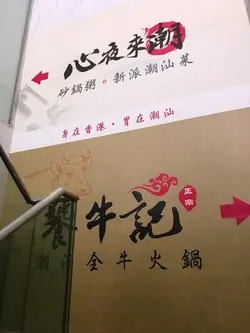 心夜來潮
砂鍋粥。新派潮汕菜
身在香港·胃在潮汕
饕 牛記
正宗
潮汕全牛火鍋